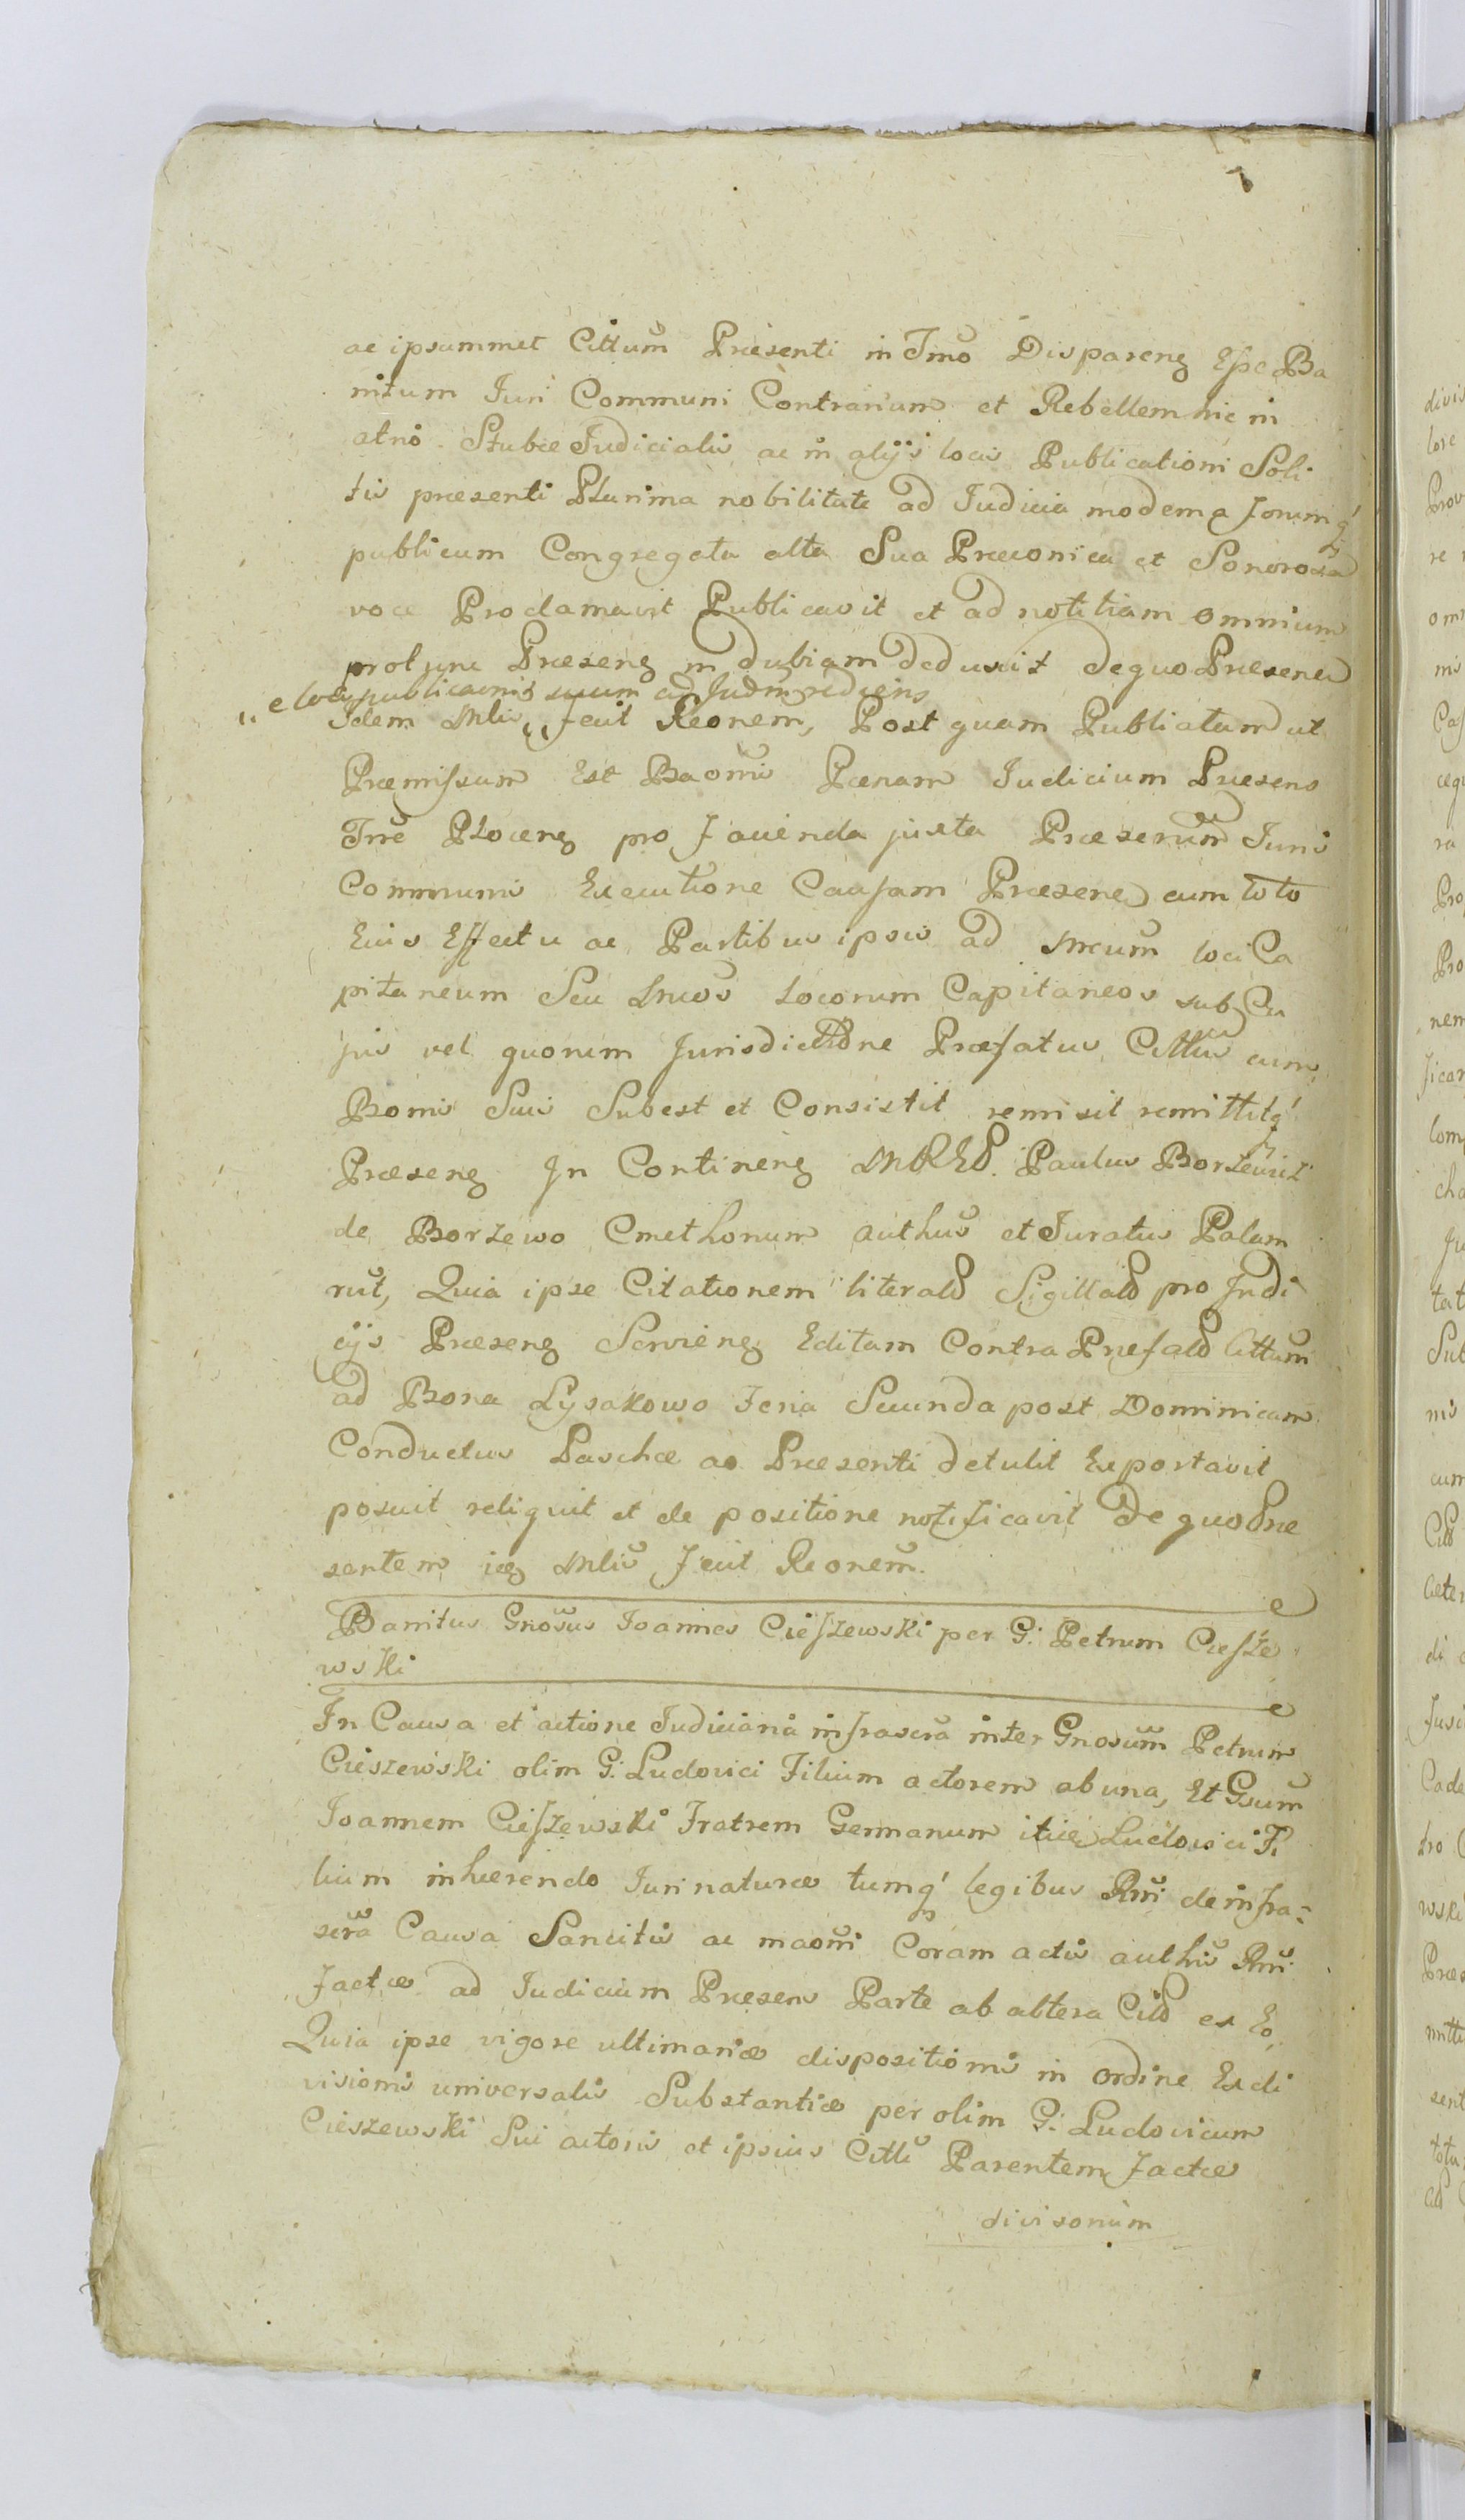 ac ipsummet Cittum Præsenti in Tmo Disparens Esse Ba
nitum Juri Communi Contrarium et Rebellem hic in
atrio Stubæ Judicialis ac in alijs locis Publicationi Soli
tis præsenti Plurima nobilitate ad Judicia moderna forumq'
publicum Congregata alta Sua Præconica et Sonorosa
voce Proclamavit Publicavit et ad notitiam omnium
protunc Præsens in dubiam deduxit de quo Præsene
e loco publicaonis suum ad Judm rediens
Idem Mlis fecit Reonem, Post quam Publicatam ut
Præmissum Est Baonis Pænam Judicium Præsens
Trrē Plocens pro facienda juxta Præscrum Juris
Communis Executione Causam Præsene cum toto
Eius Effectu ac Partibus ipsis ad Mcum loci Ca
pitaneum Seu Mcos Locorum Capitaneos sub Cu
jus vel quorum Jurisdictione Præfatus Cittus cum
Bonis Suis Subest et Consistit remisit remittitq'
Præsens In Continens Paulus Borzewski
de Borzewo Cmethonum authus et Juratus Palam
rut, Quia ipse Citationem literald Sigillald pro Judi
cijs Præsens Serviens Editam Contra Præfald Cittum
ad Bona Lysakowo Feria Secunda post Dominicam
Conductus Paschæ ao Præsenti detulit Exportavit
posuit reliquit et de positione notificavit De quo Præ
sentem ice Mlis fecit Reonem.
Banitus Gnosus Joannes Cieszewski per G: Petrum Ciesze
wski
In Causa et actione Judiciaria infrascra inter Gnosum Petrum
Cieszewski olim G: Ludovici Filium actorem ab una, Et Gsum
Joannem Cieszewski Fratrem Germanum itide Ludovici Fi
lium inhærendo Juri naturæ tumq' legibus Rni de infra:
scra Causa Sancitis ac maoni Coram actis authis Rni
factæ ad Judicium Præsens Parte ab altera Citd ex Eo
Quia ipse vigore ultimariæ dispositionis in ordine Exdi
visionis universalis Substantiæ per olim G: Ludovicum
Cieszewski Sui actoris et ipsius Citti Parentem factæ
divisorum